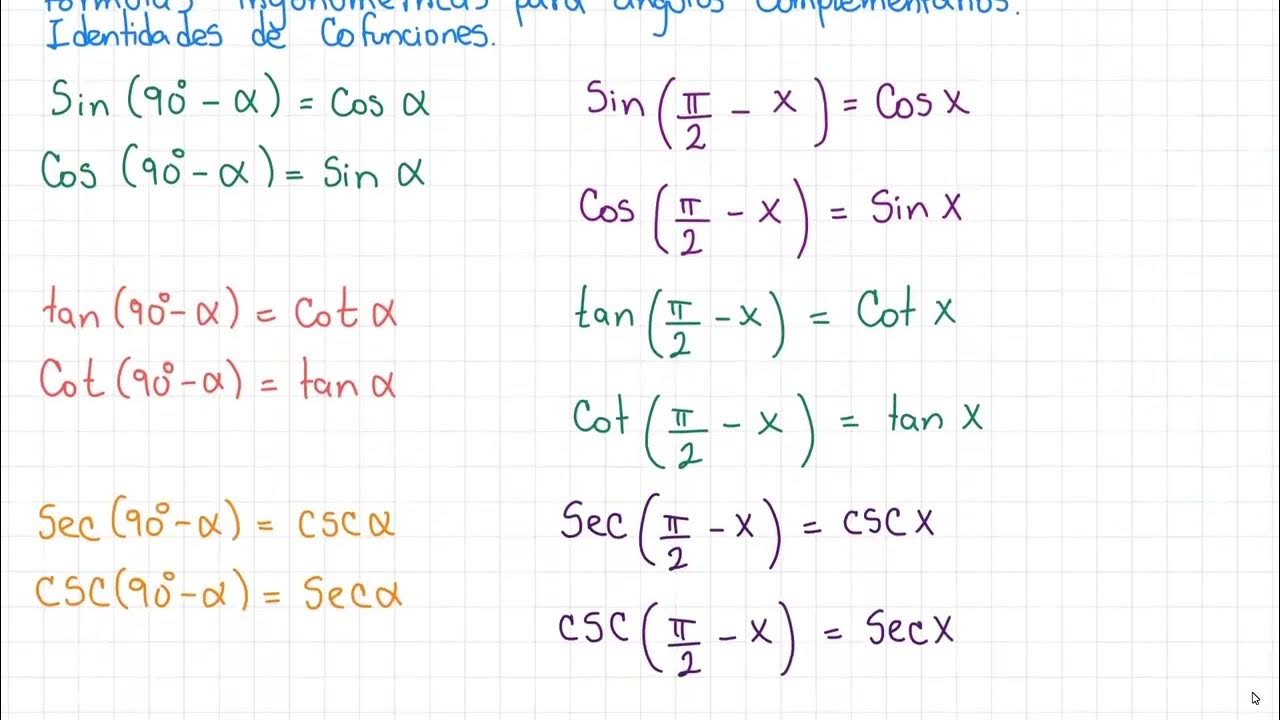 Fórmulas trigonométricas para ángulos complementarios.
Identidades de Cofunciones.
Sin (90° - α) = Cos α
Cos (90° - α) = Sin α
tan (90° - α) = Cot α
Cot (90° - α) = tan α
Sec (90° - α) = CSC α
CSC (90° - α) = Sec α
Sin (π/2 - x) = Cos x
Cos (π/2 - x) = Sin x
tan (π/2 - x) = Cot x
Cot (π/2 - x) = tan x
Sec (π/2 - x) = CSC x
CSC (π/2 - x) = Sec x